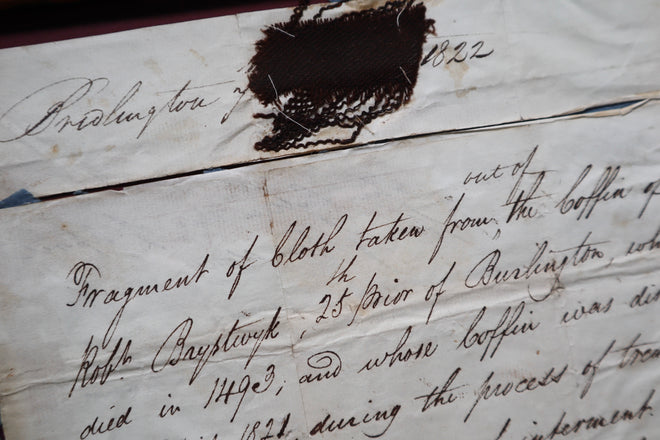 Bridlington 7 1822
out of
Fragment of Cloth taken from the Coffin of
Robt. Brystwyk, 25th Prior of Burlington, who
died in 1493, and whose Coffin was dis
1821, during the process of
interment.